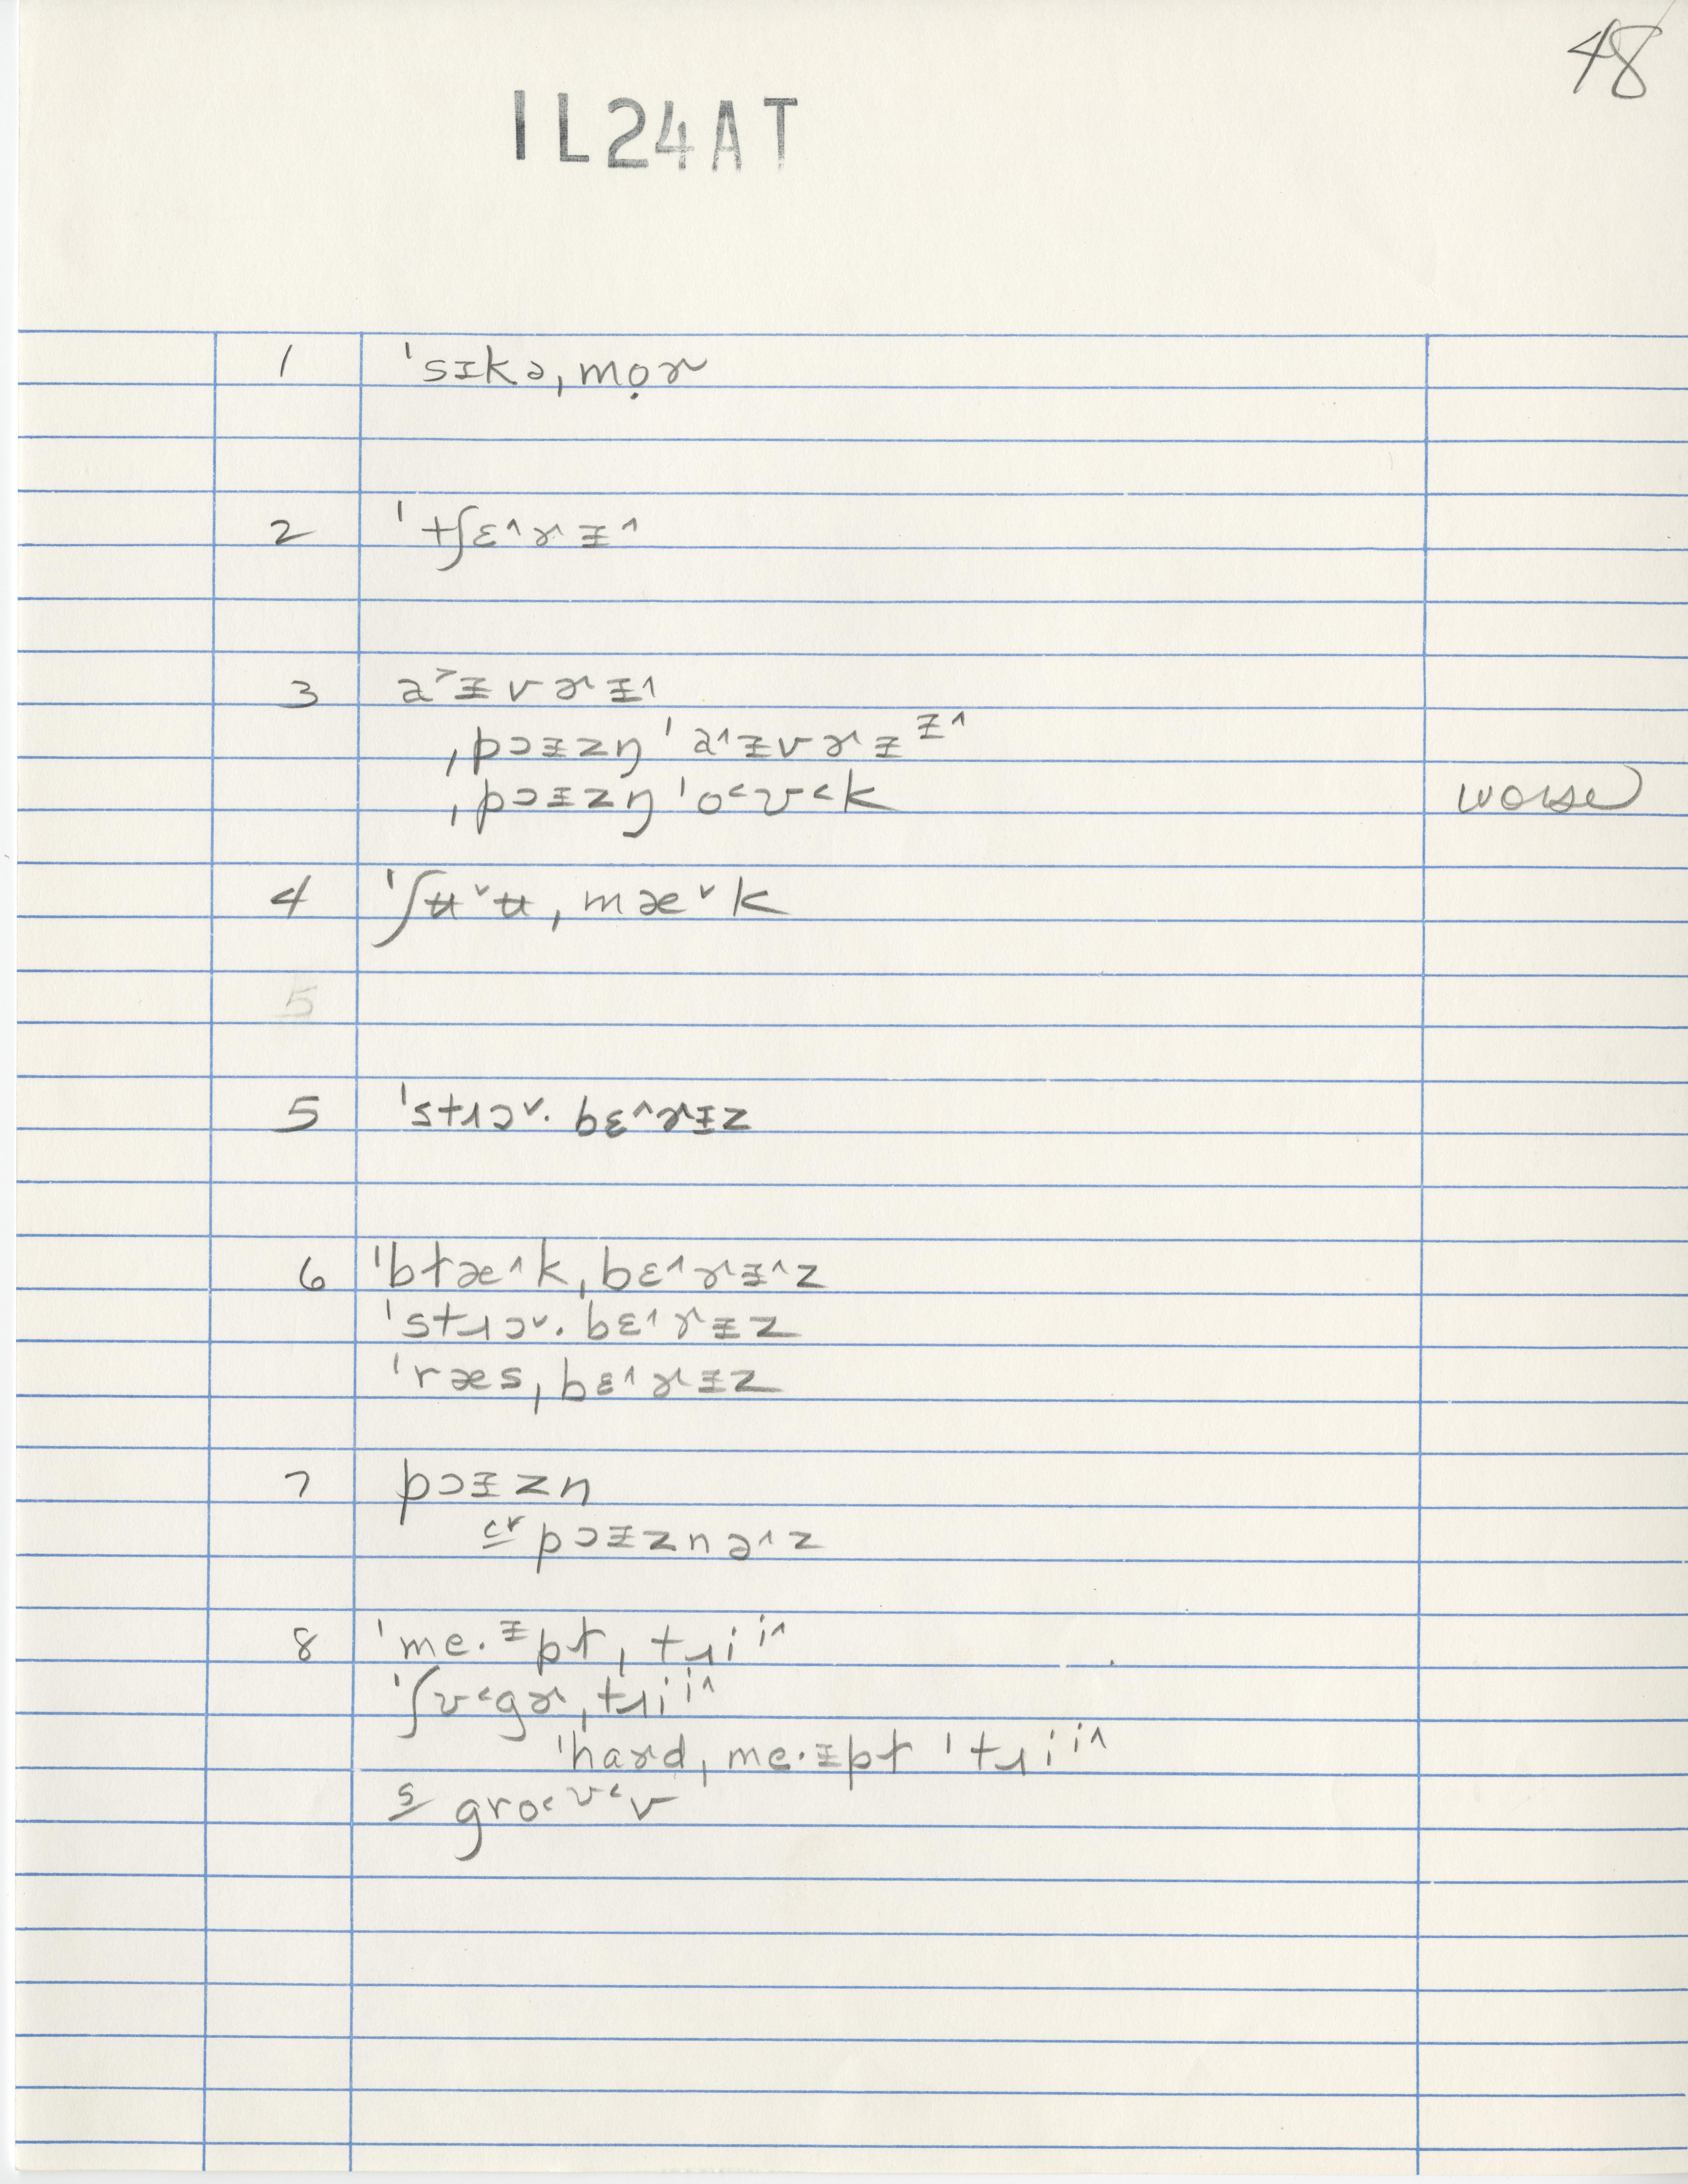 48
IL24AT
1 ˈsɪ̵kə ˌmọɚ
2 ˈtʃɛ˄ɚɪ̵˄
3 a˃ɪ̵vɚɪ̵˄
ˌpɔɪ̵zn̩ ˈa˄ɪ̵vɚɪ̵ ɪ̵˄
ˌpɔɪ̵zn̩ ˈo˂ʊ˂k worse
4 ˈʃʉ˅ʉ ˌmæ˅k
5
5 ˈstɹɔ˅· bɛ˄ɚɪ̵z
6 ˈbɫæ˄k ˌbɛ˄ɚɪ̵˄z
ˈstɹɔ˅· bɛ˄ɚɪ̵z
ˈræs ˌbɛ˄ɚɪ̵z
7 pɔɪ̵zn
cr pɔɪ̵znə˄z
8 ˈme·ɪ̵pɫ ˌtɹi i˄
ˈʃʊ˂gɚ ˌtɹi i˄
ˈhaɚd ˌme·ɪ̵pɫ ˈtɹi i˄
s gro˂ʊ˂v